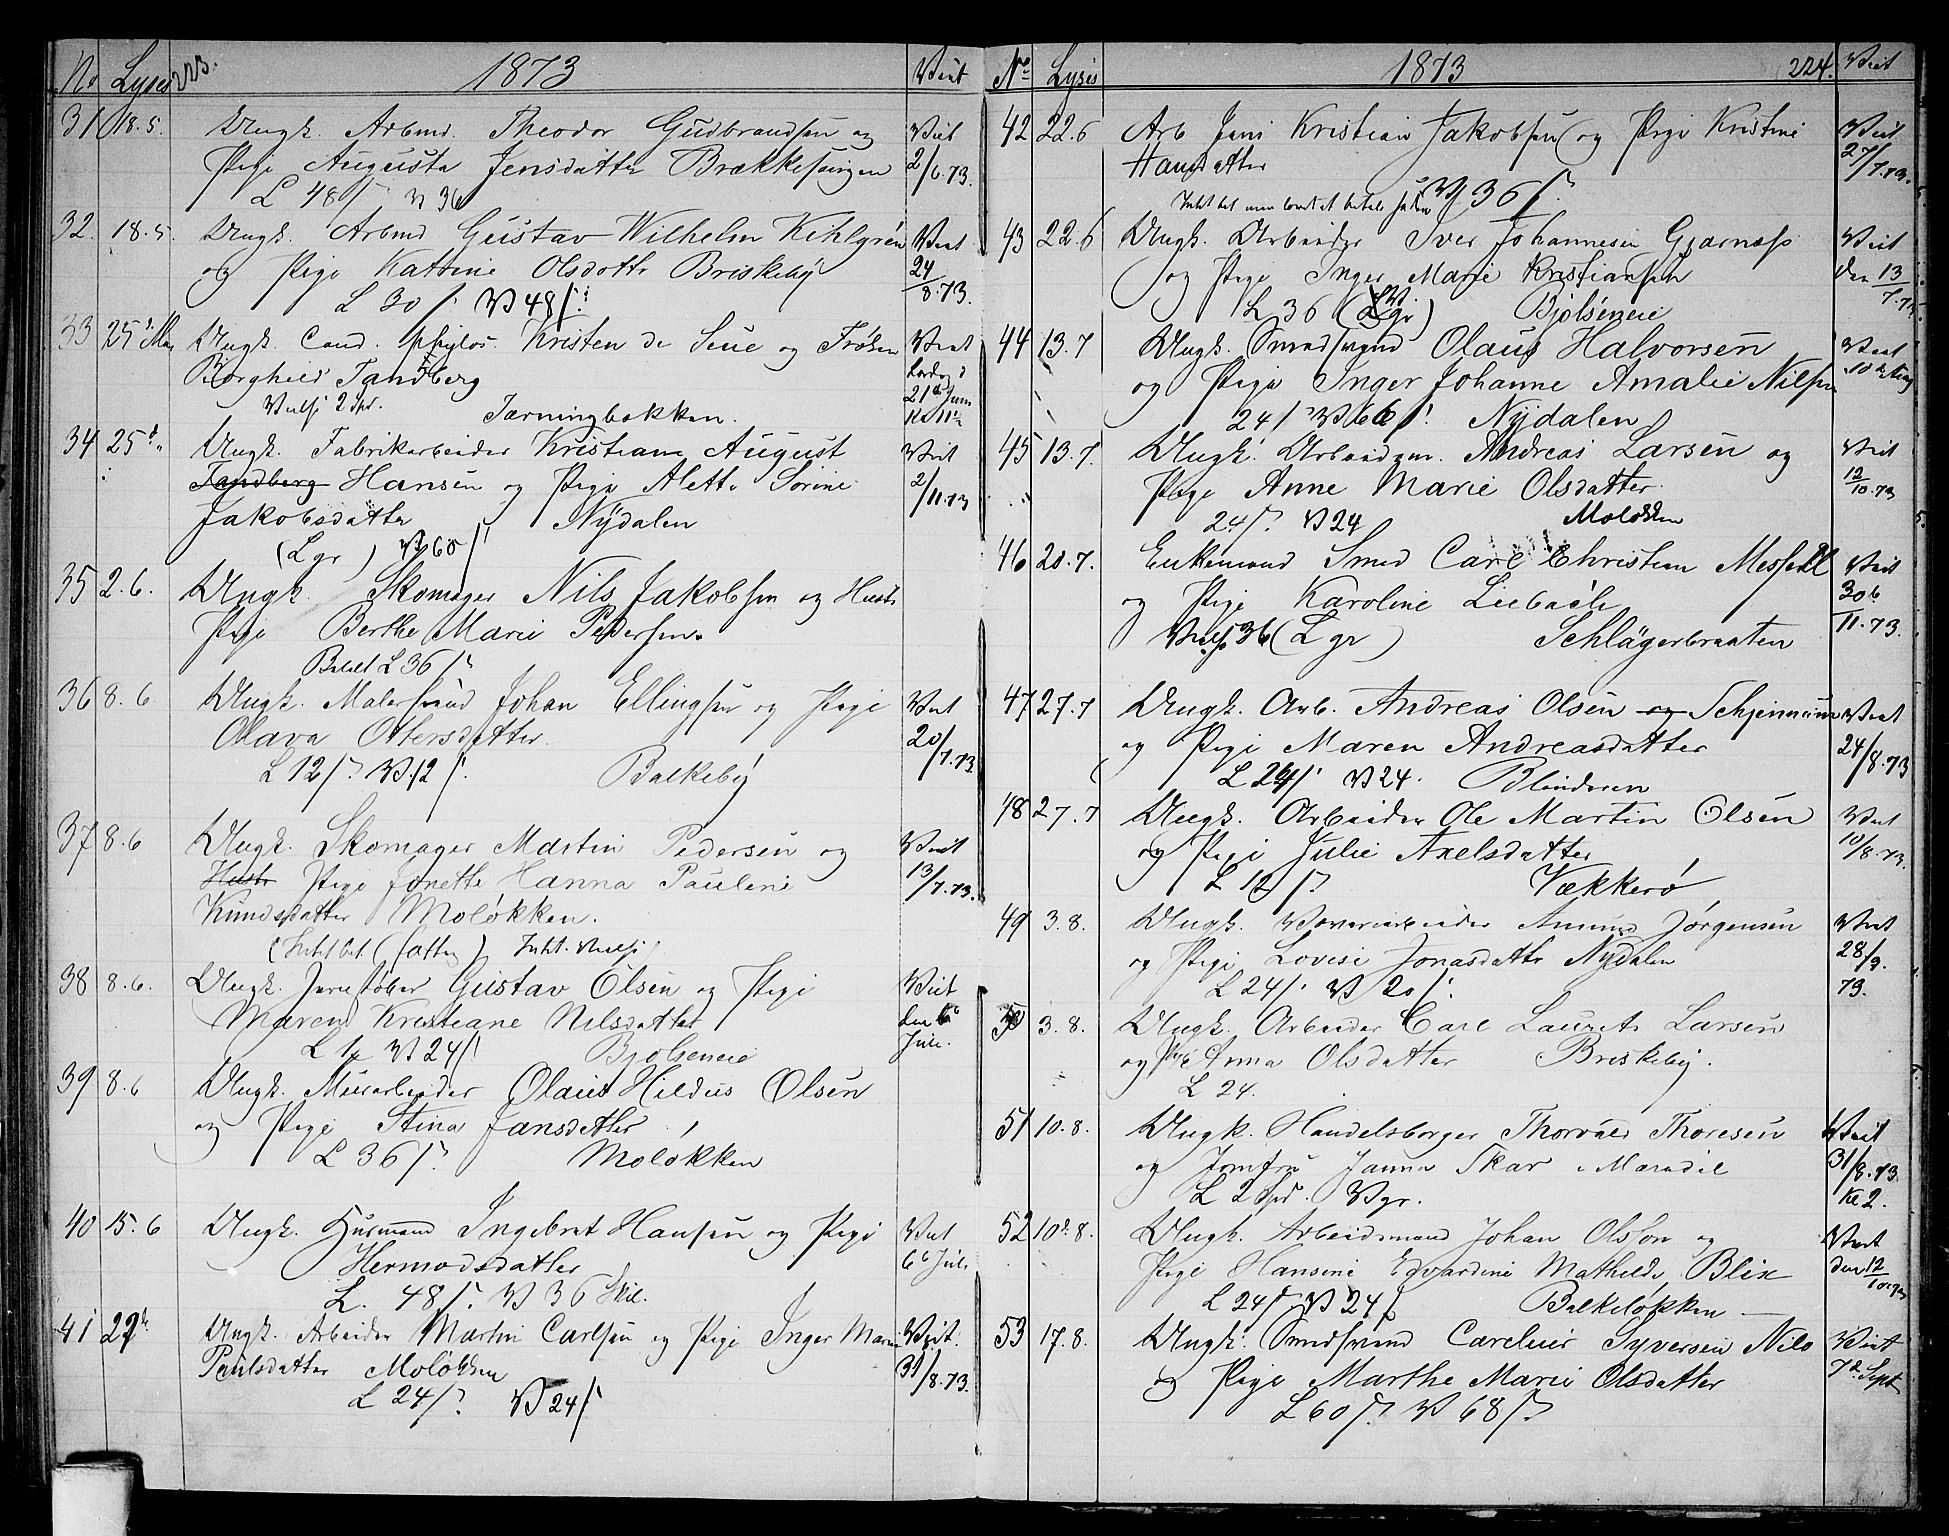 No Lyses 223. 1873 Viet
31 18.5. Ungk. Arbmd. Theodor Gudbrandsen og Viet
Pige Augusta Jensdatter Brækkesvingen 2/6.73.
L 48 ß V 36
32. 18.5. Ungk. Arbmd Gustav Wilhelm Kihlgrén Viet
og Pige Katrine Olsdattr Briskeby 24/8.73.
L 30 ß V 48 ß
33 25d Mai Ungk. Cand. philos. Kristen de Seue og Frøken Viet
Borghild Tandberg Lørdag d
Vielse 2 Spd. Tærningbakken. 21de Juni
Kl 11½
34 25d " Ungk. Fabrikarbeider Kristian August Viet
Tandberg Hansen og Pige Alette Sørine 2/11.73
Jakobsdatter Nydalen
(L gr) V 60 ß
35 2.6. Ungk. Skomager Nils Jakobsen og Hustr
Pige Berthe Marie Pedersen.
Betalt L 36 ß
36 8.6. Ungk. Malersvend Johan Ellingsen og Pige Viet
Olava Ottersdatter. 20/7.73.
L 12 ß V. 12 ß. Balkeby
37 8.6 Ungk. Skomager Martin Pedersen og Viet
Hustr Pige Jonette Hanna Pauline 13/7.73.
Knudsdatter Moløkken.
(Intet bet. (fattig) Intet. Vielse
38 8.6. Ungk. Jernstøber Gustav Olsen og Pige Viet
Maren Kristiane Nilsdatter den 6te
L 12 V 24 ß Bjølseneie Juli.
39 8.6 Ungk. Murarbeider Olaus Hildus Olsen
og Pige Stina Jansdatter
L 36 ß. Moløkken
40 15.6 Ungk. Husmand Ingebret Hansen og Pige Viet
Hermodsdatter 6te Juli
L. 48 ß. V 36 Skil.
41 22d Ungk. Arbeider Martin Carlsen og Pige Inger Marie Viet.
Paulsdatter Moløkken 31/8.73.
L 24 ß. V 24 ß
No Lyses 1873 224. Viet
42 22.6 Arb Jens Kristian Jakobsen og Pige Kristine Viet
Hansdatter 27/7.73.
Intet bet men lovet at betale siden V 36 ß.
43 22.6 Ungk. Arbeider Iver Johannesen Gjørnæss Viet
og Pige Inger Marie Kristiansen den 13/7.73
L 36 (V. gr) Bjølseneie
44 13.7 Ungk. Smedsvend Olaus Halvorsen Viet
og Pige Inger Johanne Amalie Nilsen 10de Aug
24 ß V 66 ß. Nydalen
45 13.7. Ungk. Arbeidsm. Andreas Larsen og Viet
Pige Anne Marie Olsdatter. 12/10.73
24 ß. V 24 Moløkken
46 20.7. Enkemand Smed Carl Christian Messel Viet
og Pige Karoline Liebach 30te
Vielse 36 (L gr) Schlägerbraaten 11.73.
47 27.7 Ungk. Arb. Andreas Olsen og Schjennum Viet
og Pige Maren Andreasdatter 24/8.73
L 24 ß V 24. Blindern
48 27.7 Ungk. Arbeider Ole Martin Olsen Viet
og Pige Julie Axelsdatter 10/8.73.
L 12 ß Vækkerø
49 3.8. Ungk. Væveriarbeider Amund Jørgensen Viet
og Pige Lovise Jonasdattr Nydalen 28/9.
L 24 ß V 20 ß. 73.
50 3.8. Ungk. Arbeider Carl Laurits Larsen
og Pige Anna Olsdatter Briskeby.
L 24.
51 10.8. Ungk. Handelsborger Thorvald Thoresen Viet
og Jomfru Janna Skar i Maridal 31/8.73.
L 2 Spd. V gr. Kl 2.
52 10d.8. Ungk. Arbeidsmand Johan Olsson og Viet
Pige Hansine Edvardine Mathilde Blix den 12/10
L 24 ß V 24 ß Balkeløkken
53 17.8. Ungk. Smedsvend Carelius Syversen Nilo Viet
og Pige Marthe Marie Olsdatter 7d Sept
L 60 ß. V 68 ß.